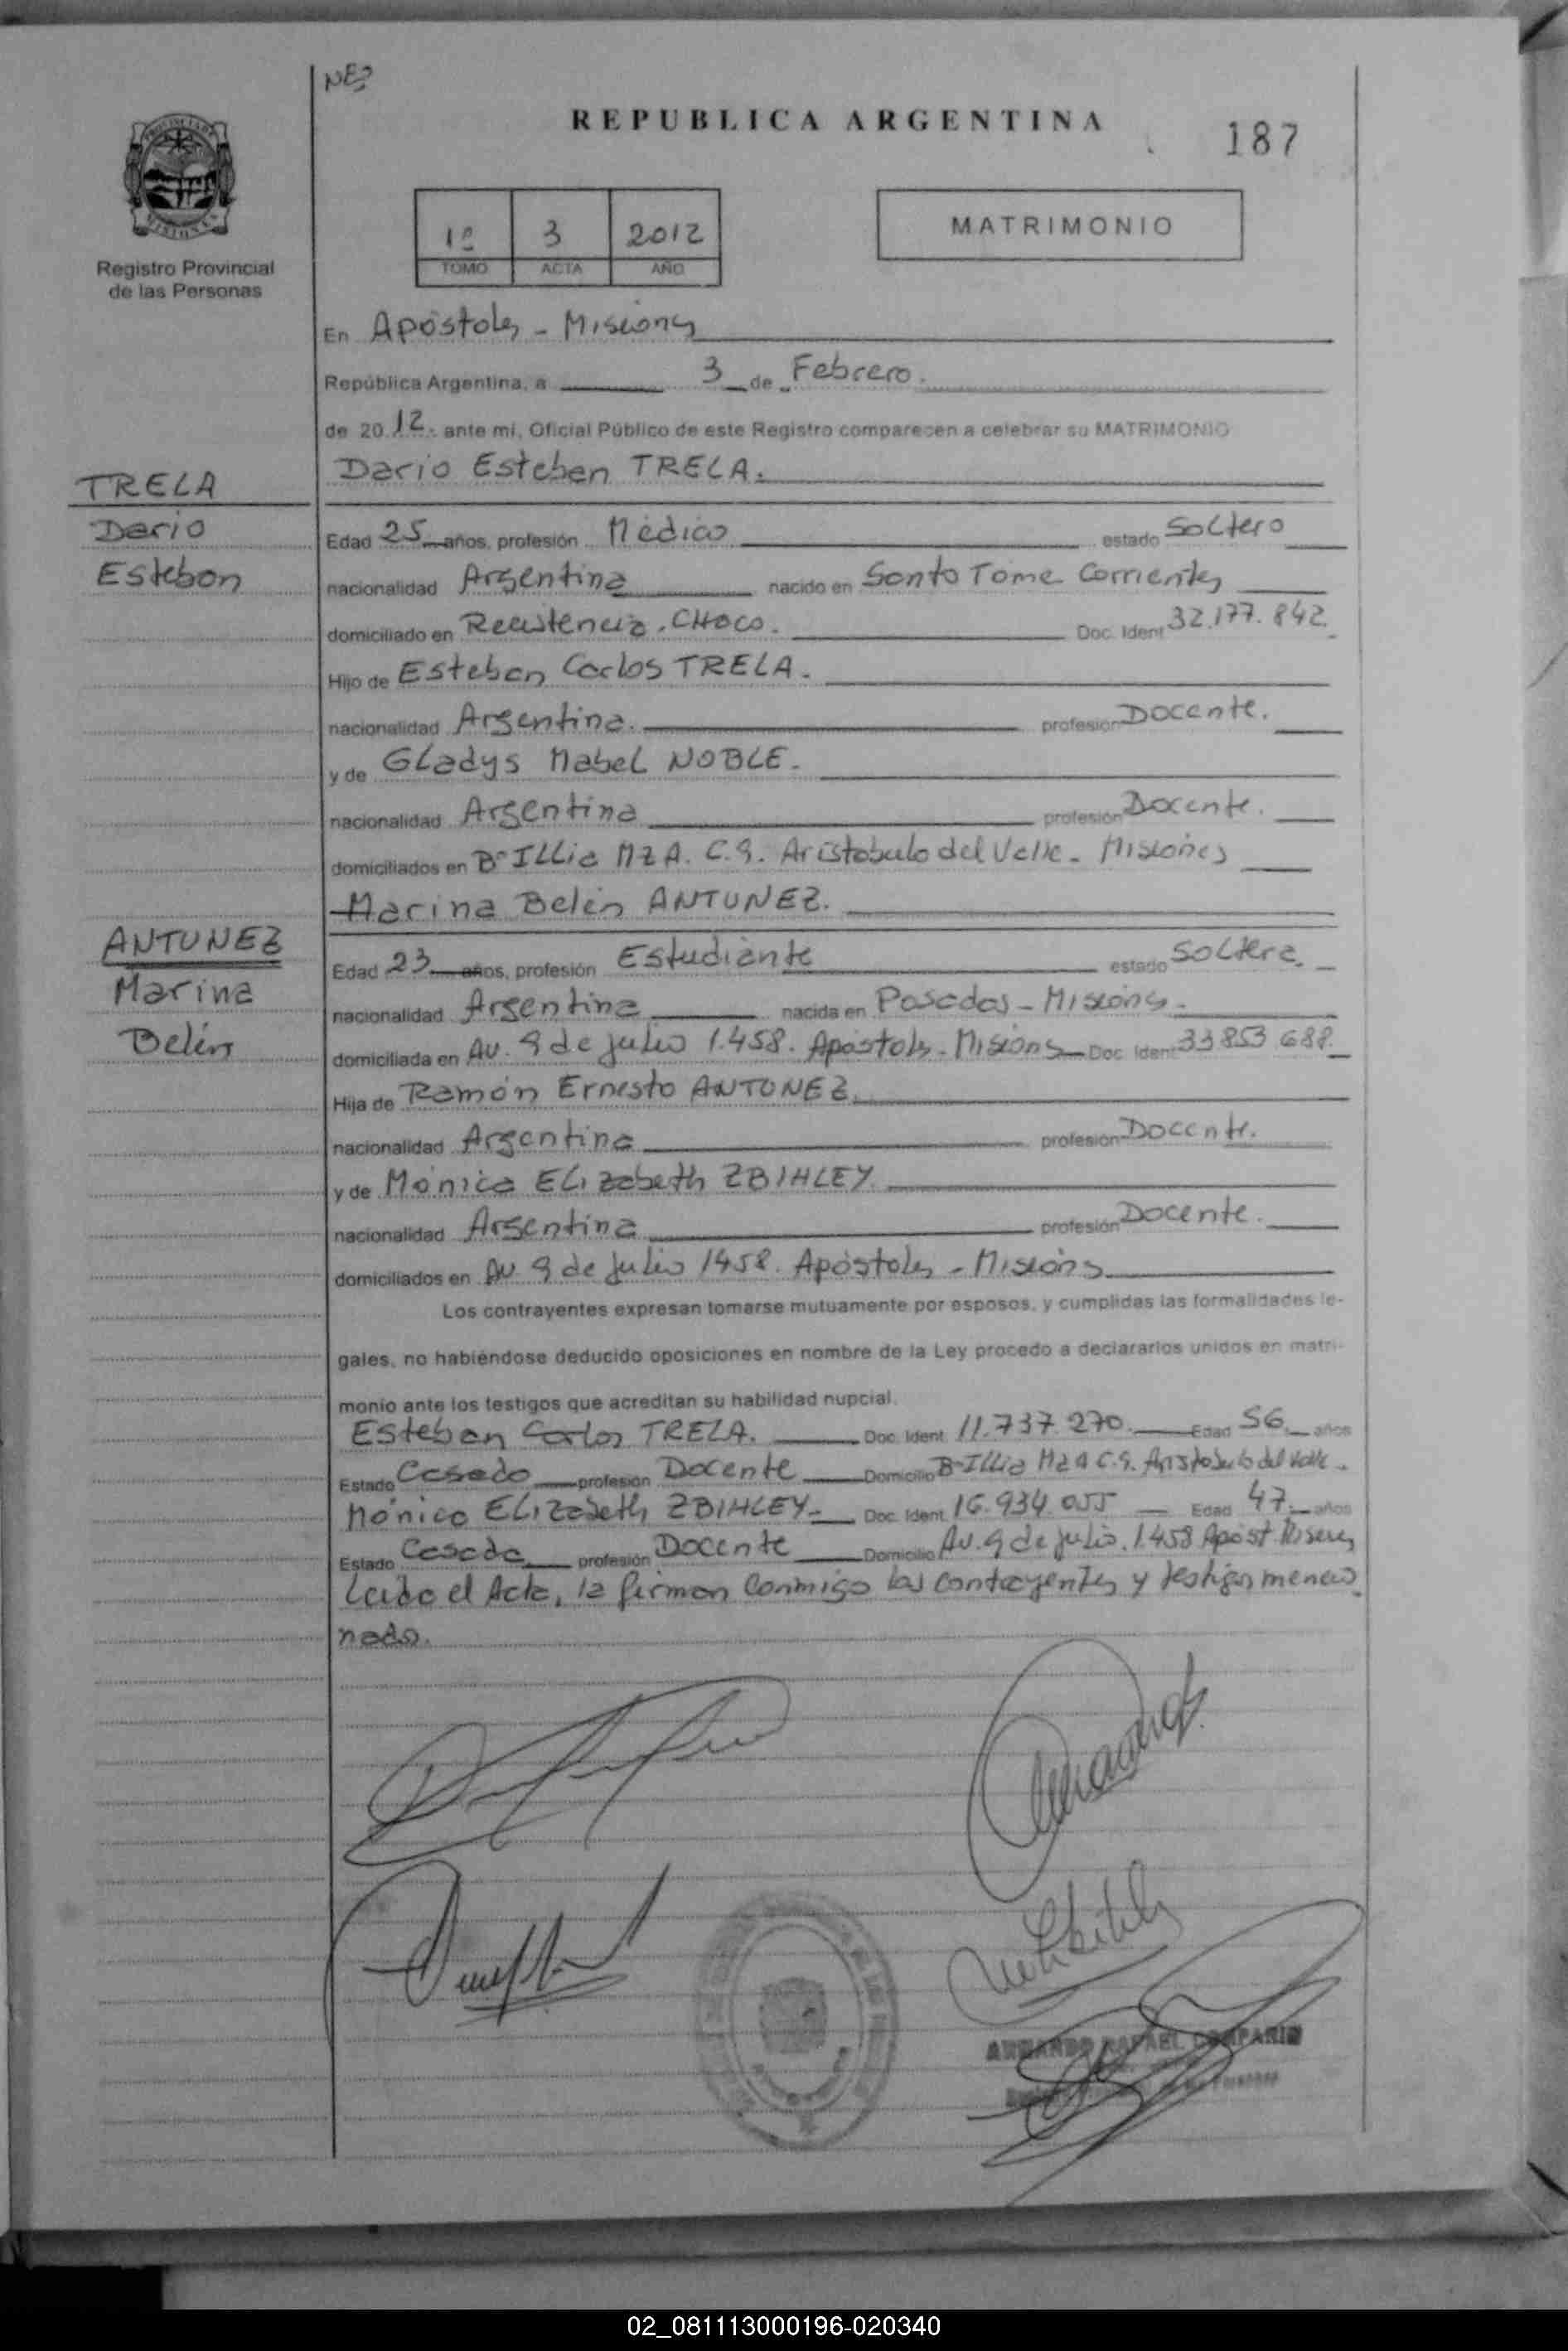 NE?
REPUBLICA ARGENTINA
187
1º 3 2012
TOMO ACTA AÑO
MATRIMONIO
Registro Provincial
de las Personas
En Apóstoles - Misiones
República Argentina, a 3 de Febrero.
de 2012. ante mi, Oficial Público de este Registro comparecen a celebrar su MATRIMONIO
Dario Esteban TRELA.
TRELA
Dario
Esteban
Edad 25 años, profesión Médico estado Soltero
nacionalidad Argentina nacido en Santo Tome Corrientes
domiciliado en Resistencia. CHACO. Doc. Ident 32.177.842.
Hijo de Esteban Carlos TRELA.
nacionalidad Argentina. profesión Docente.
y de Gladys Mabel NOBLE.
nacionalidad Argentina profesión Docente.
domiciliados en Bº Illia MZ A. C.9. Aristobulo del Valle - Misiones
Marina Belén ANTUNEZ.
ANTUNEZ
Marina
Belén
Edad 23 años, profesión Estudiante estado Soltera.
nacionalidad Argentina nacida en Posadas - Misiones.
domiciliada en Av. 9 de julio 1.458. Apóstoles - Misiones Doc. Ident 33853.688.
Hija de Ramón Ernesto ANTUNEZ.
nacionalidad Argentina profesión Docente.
y de Mónica Elizabeth ZBIHLEY.
nacionalidad Argentina profesión Docente.
domiciliados en Av 9 de Julio 1458. Apóstoles - Misiones
Los contrayentes expresan tomarse mutuamente por esposos, y cumplidas las formalidades le-
gales, no habiéndose deducido oposiciones en nombre de la Ley procedo a declararlos unidos en matri-
monio ante los testigos que acreditan su habilidad nupcial.
Esteban Carlos TRELA. Doc. Ident. 11.737.270. Edad 56. años
Estado Casado profesión Docente Domicilio Bº Illia MZ A C.9. Aristobulo del Valle.
Mónica Elizabeth ZBIHLEY. Doc. Ident. 16.934.055 Edad 47. años
Estado Casada profesión Docente Domicilio Av. 9 de julio. 1.458 Apóst. Misiones
Leido el Acta, la firman conmigo los contrayentes y testigos mencio
nados.
ARMANDO RAFAEL COMPARIN
02_081113000196-020340